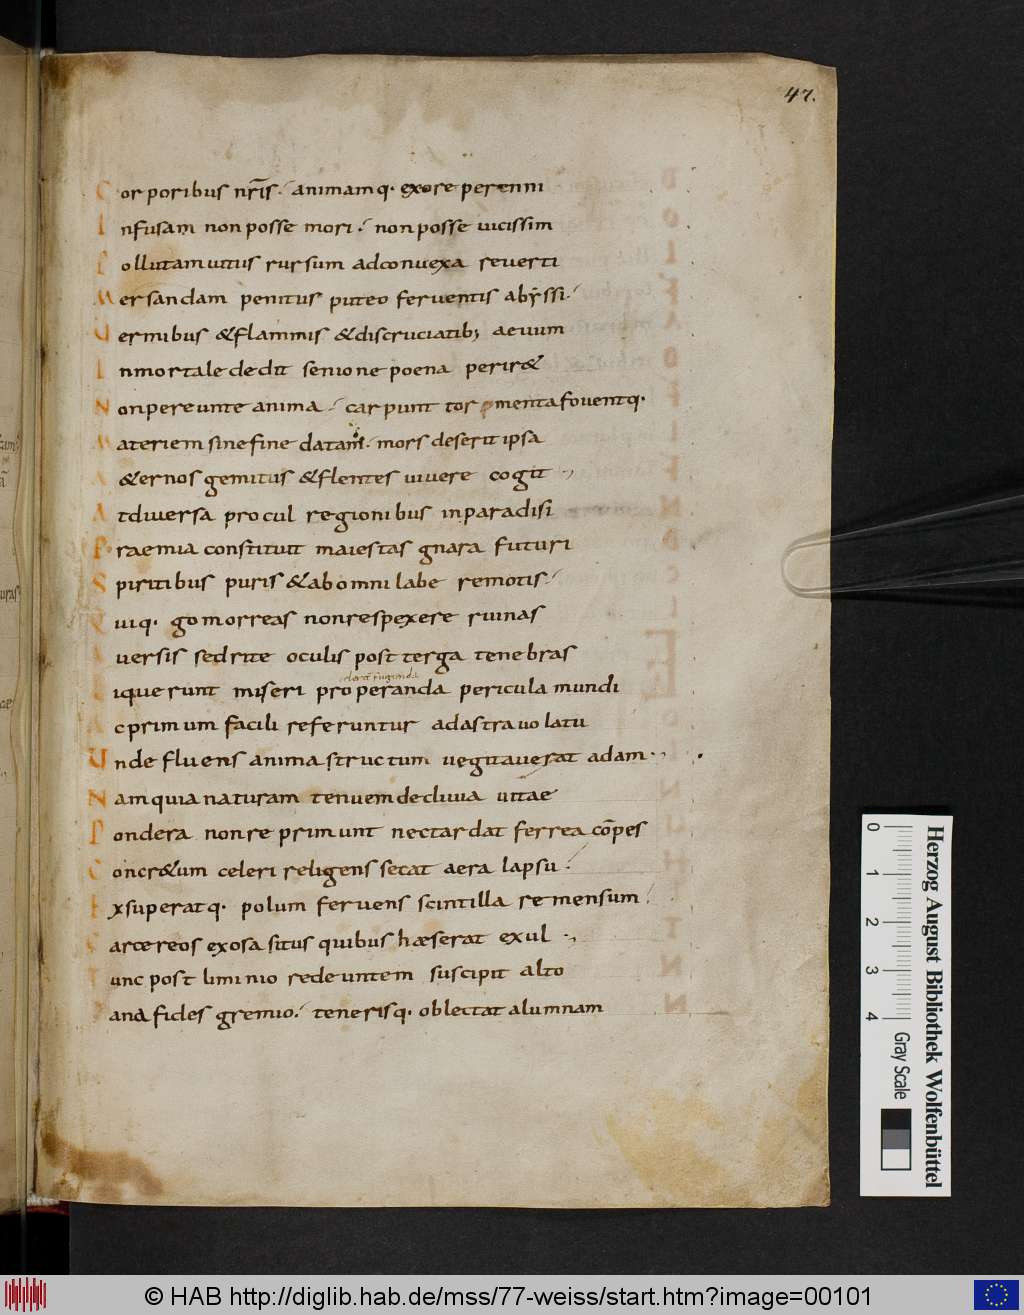 47.
Corporibus nr̄is. animamq· exore perenni
Infusam non posse mori. non posse uicissim
Pollutam uitiis rursum adconuexa reuerti
Mersandam penitus puteo feruentis abyssi.
Uermibus &flammis &discruciatib; aeuum
Inmortale dedit senio nec poena perir&
Non pereunte anima. carpunt tormenta fouentq·
Materiem sine fine datam. mors deserit ipsa
A&ernos gemitus &flentes uiuere cogit
At diuersa procul regionibus in paradisi
Praemia constituit maiestas gnara futuri
Spiritibus puris &ab omni labe remotis.
Quiq· gomorreas non respexere ruinas
Auersis sed rite oculis post terga tenebras
Liquerunt miseri properanda pericula mundi
Ac primum facili referuntur ad astra uolatu
Unde fluens anima structum uegitauerat adam
Nam quia naturam tenuem decliuia uitae
Pondera non reprimunt nec tardat ferrea co͞pes
Concr&um celeri religens secat aera lapsu.
Exsuperatq· polum feruens scintilla remensum.
Carcereos exosa situs quibus hæserat exul
Tunc post liminio redeuntem suscipit alto
Cana fides gremio. tenerisq· oblectat alumnam
Herzog August Bibliothek Wolfenbüttel
0 1 2 3 4 Gray Scale
© HAB http://diglib.hab.de/mss/77-weiss/start.htm?image=00101